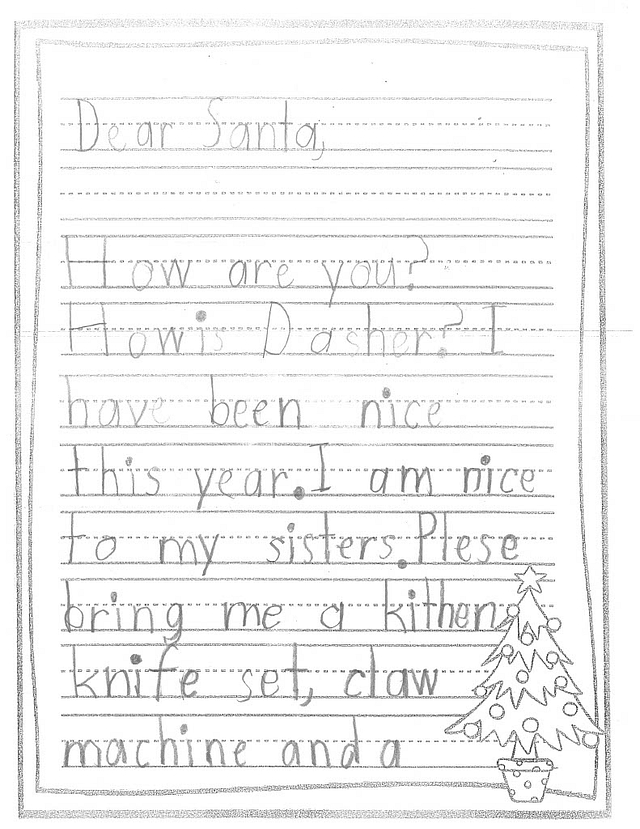 Dear Santa,
How are you?
How is Dasher? I
have been nice
this year. I am nice
to my sisters. Plese
bring me a kithen
knife set, claw
machine and a